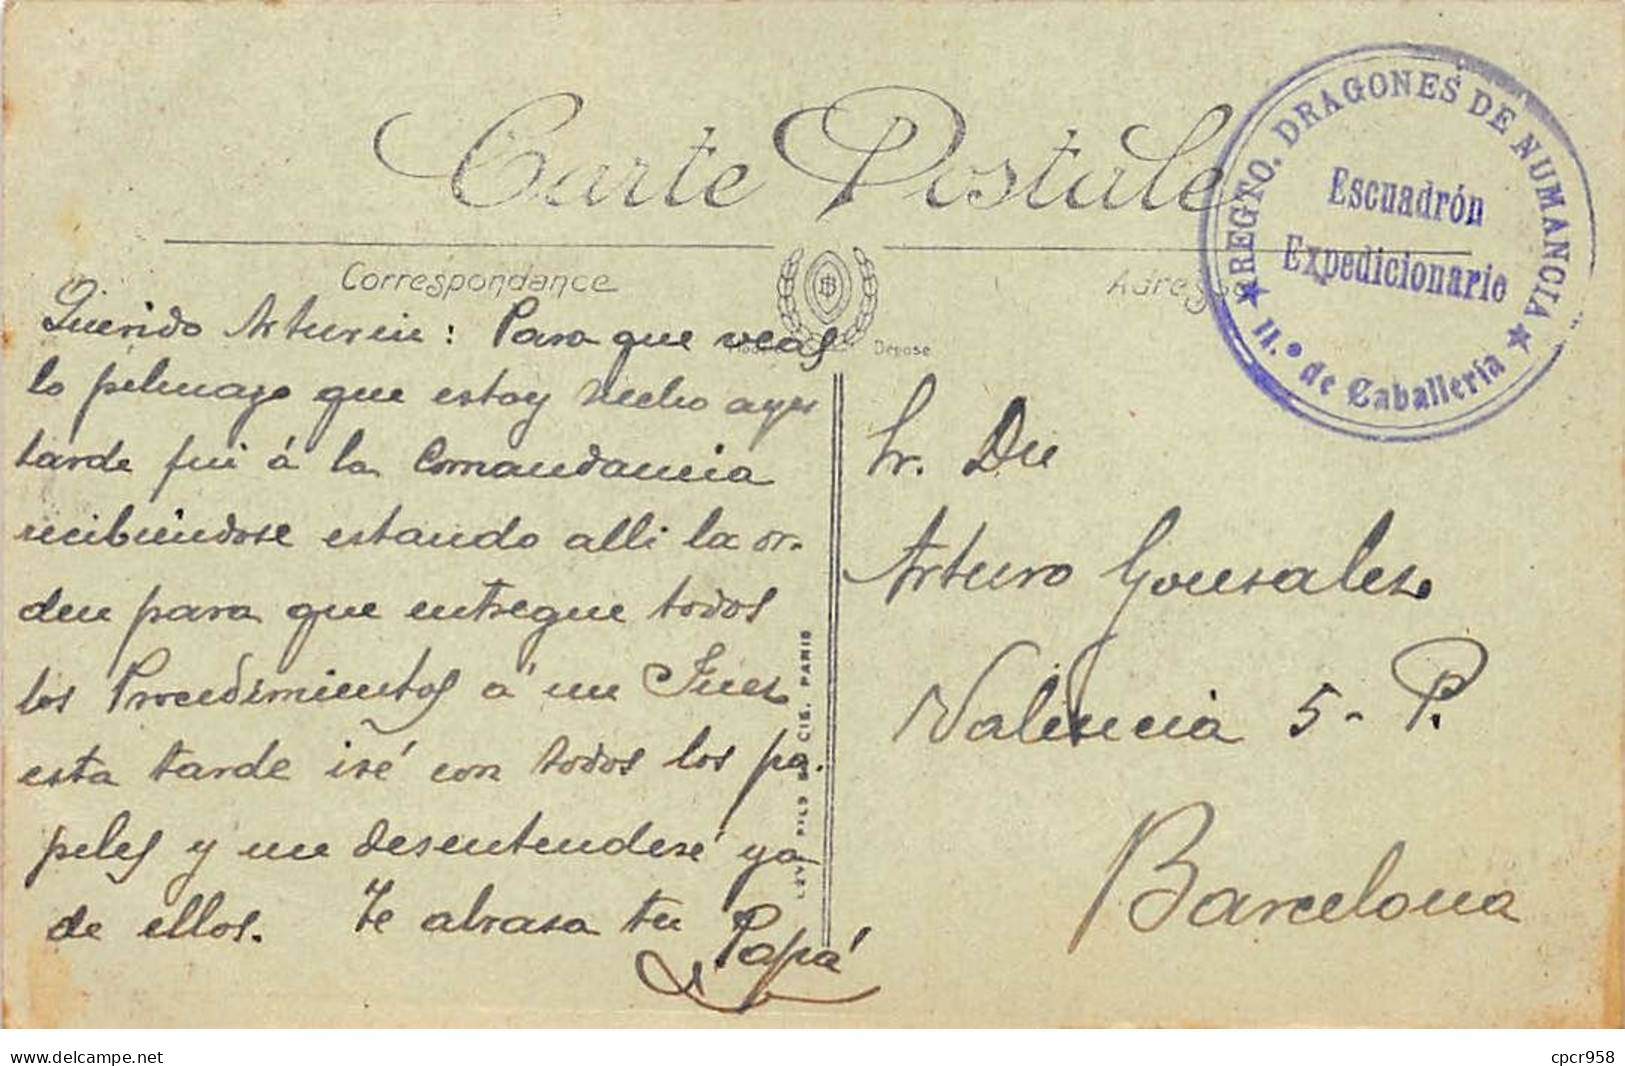 Carte Postale
Correspondance
Adresse
Déposé
REGTO. DRAGONES DE NUMANCIA
Escuadrón
Expedicionario
★ 11.º de Caballería ★
Querido Arturin: Para que veas
lo pelmazo que estoy hecho ayer
tarde fui á la Comandancia
recibiéndose estando alli la or-
den para que entregue todos
los Procedimientos á un Juez
esta tarde iré con todos los pa-
peles y me desentenderé ya
de ellos. Te abraza tu Papá
LEVY FILS & CIE. PARIS
Sr. Dn
Arturo Gonzalez
Valencia 5 - P.
Barcelona
www.delcampe.net
cpcr958